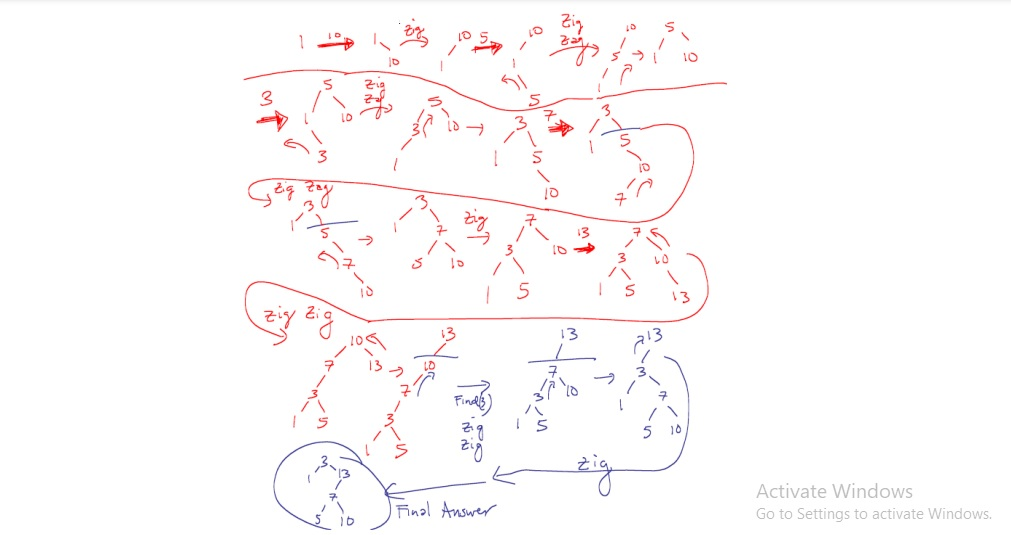 1 10 1 10 zig 10 1 5 10 1 5 Zig Zag 10 5 1 5 1 10
3 5 1 10 3 Zig Zag 5 3 10 1 3 1 5 10 7 3 1 5 10 7
Zig Zag 3 1 5 7 10 3 1 7 5 10 Zig 7 3 10 1 5 13 7 3 10 1 5 13
Zig Zig 10 7 13 3 1 5 13 10 7 3 1 5 Find(3) Zig Zig 13 7 3 10 1 5 13 3 1 7 5 10
Zig
3 1 13 7 5 10 Final Answer
Activate Windows
Go to Settings to activate Windows.